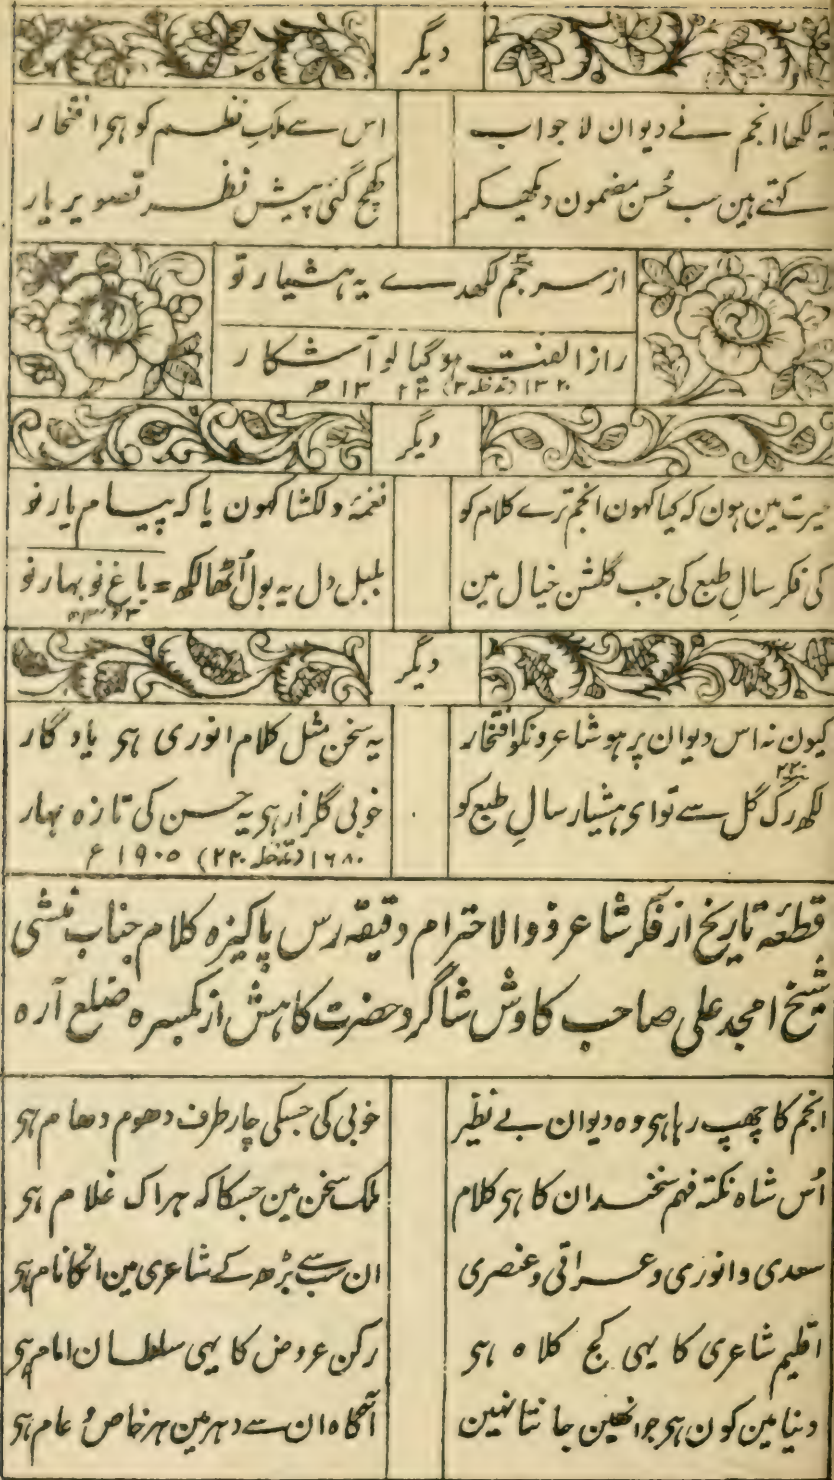 دیگر
یہ لکھا انجم نے دیوان لا جواب اس سے ملکِ نظم کو ہی افتخار
کہتے ہین سب حُسن مضمون دیکھیکر کھچ گئی پیش نظر تصویر یار
از سر جم لکھدے یہ ہشیار تو
راز الفت ہو گیا لو آشکار
۱۳۲۰ (تدخلہ ۳) ۱۳۲۳ ھ
دیگر
حیرت مین ہون کہ کیا کہون انجم ترے کلام کو نغمۂ دلکشا کہون یا کہ پیام یار نو
کی فکر سالِ طبع کی جب گلشن خیال مین بلبل دل یہ بول اُٹھا لکھ = باغ نو بہار نو
دیگر
کیون نہ اس دیوان پر ہو شاعرونکو افتخار یہ سخن مثل کلام انوری ہی یادگار
لکھ رگ گل سے تو ای ہشیار سالِ طبع کو خوبی گلزار ہی یہ حسن کی تازہ بہار
۱۶۸۰ (تدخلہ ۲۲۰) ۱۹۰۵ ء
قطعۂ تاریخ از فکر شاعر ذوالاحترام دقیقہ رس پاکیزہ کلام جناب منشی
شیخ امجد علی صاحب کاوش شاگرد حضرت کاہش از بکسرہ ضلع آرہ
انجم کا چھپ رہا ہی وہ دیوان بے نظیر خوبی کی جسکی چار طرف دھوم دھام ہی
اُس شاہ نکتہ فہم سخندان کا ہی کلام ملک سخن مین جسکا کہ ہر اک غلام ہی
سعدی و انوری و عراقی و عنصری ان سب سے بڑھ کے شاعری مین انکا نام ہی
اقلیم شاعری کا یہی کج کلاہ ہی رکن عروض کا یہی سلطان امام ہی
دنیا مین کون ہی جو انھین جانتا نہین آگاہ ان سے دہر مین ہر خاص و عام ہی